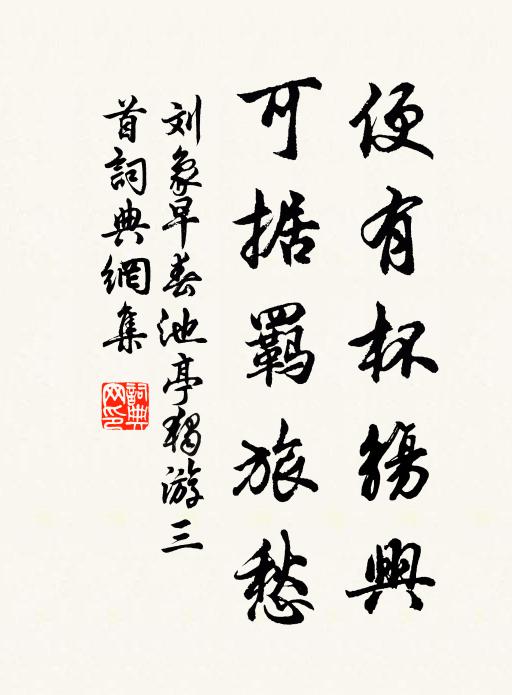 便有杯觴興
可据羁旅愁
刘象早春池亭独游三
首詞典網集
詞典網印